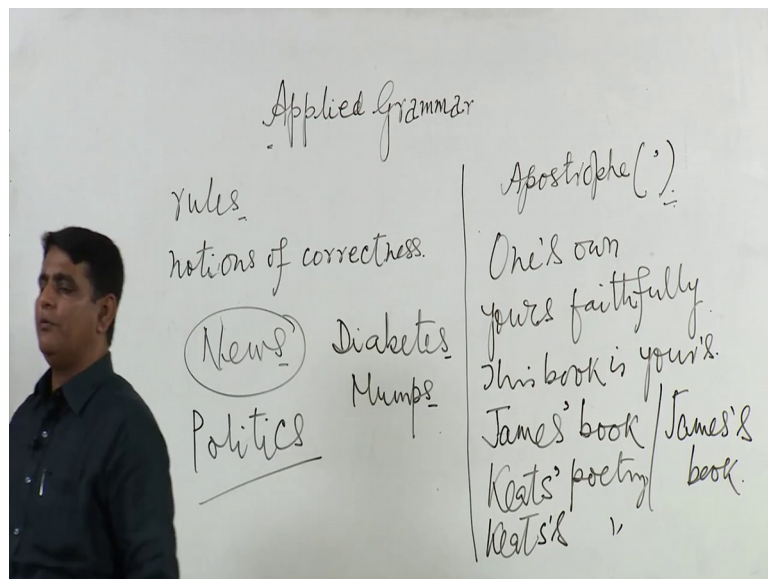 Applied Grammar
rules
notions of correctness.
News' Diabetes
Mumps
Politics
Apostrophe (')
One's own
yours faithfully
This book is your's.
James' book / James's
book.
Keats' poetry
Keats's "